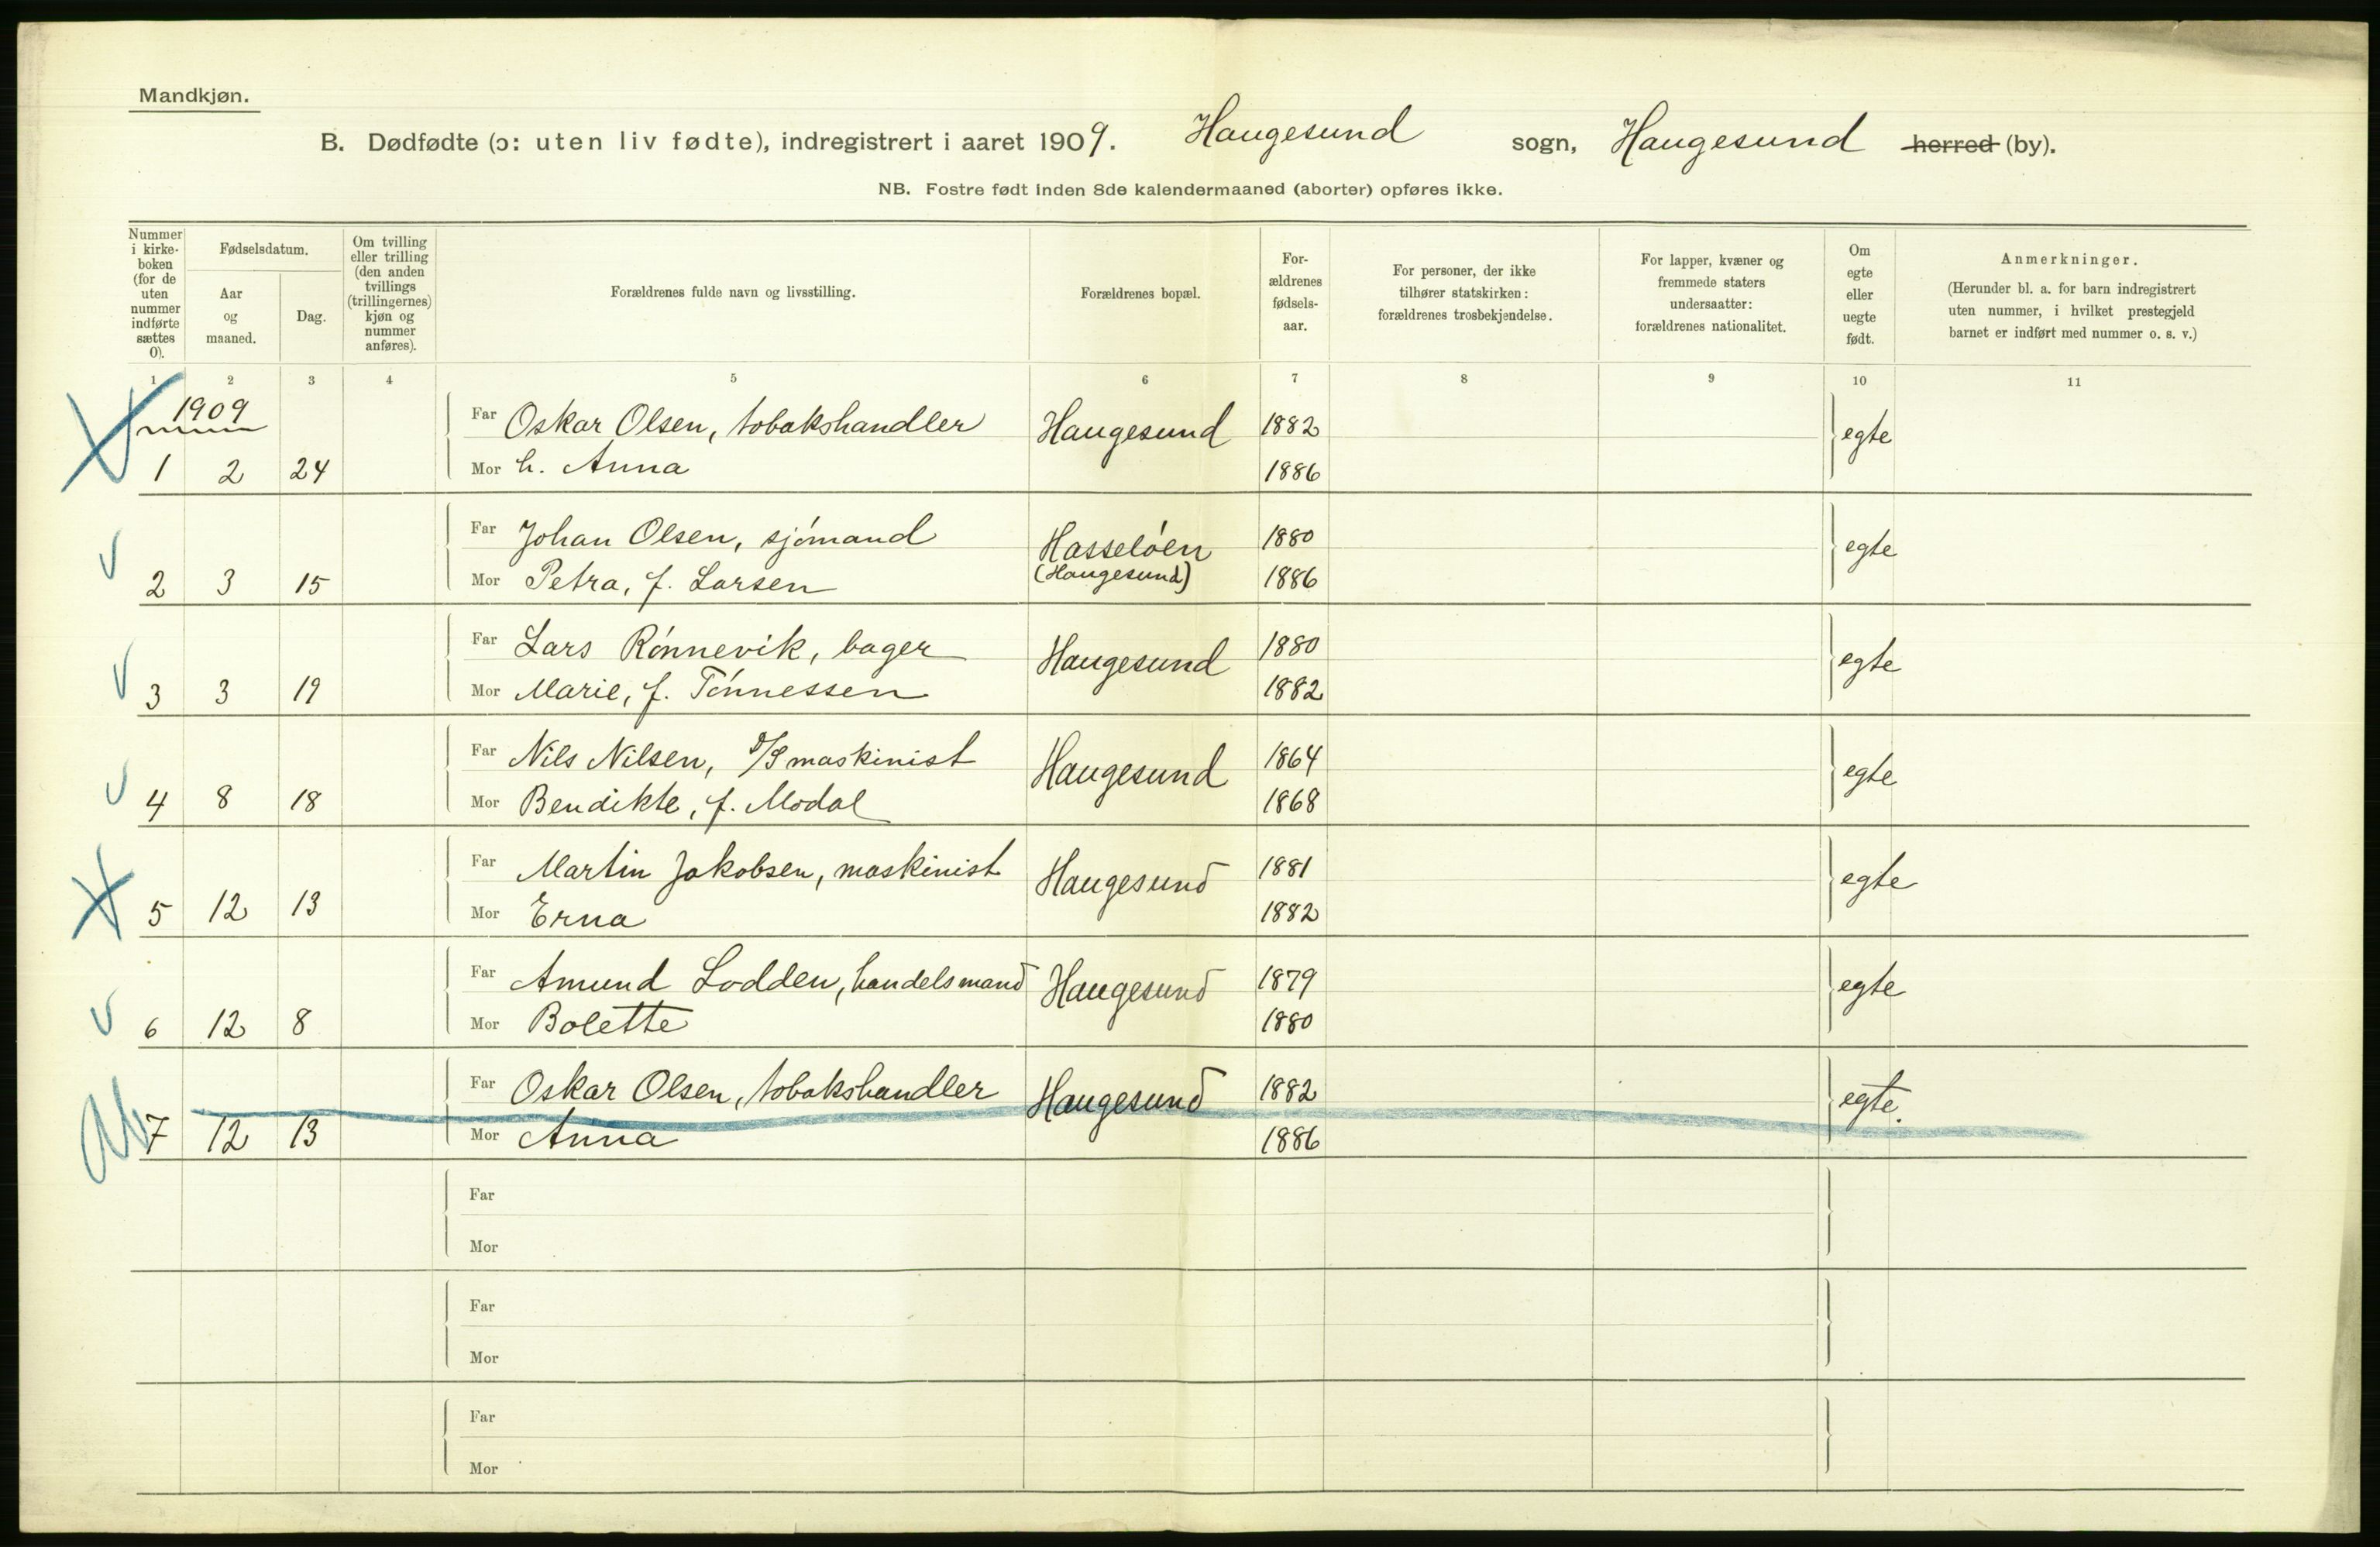 Mandkjøn.
B. Dødfødte (ɔ: uten liv fødte), indregistrert i aaret 1909. Haugesund sogn, Haugesund herred (by).
NB. Fostre født inden 8de kalendermaaned (aborter) opføres ikke.
Nummer i kirke-boken (for de uten nummer indførte sættes 0).
Fødselsdatum.
Aar og maaned.
Dag.
Om tvilling eller trilling (den anden tvillings (trillingernes) kjøn og nummer anføres).
Forældrenes fulde navn og livsstilling.
Forældrenes bopæl.
For-ældrenes fødsels-aar.
For personer, der ikke tilhører statskirken: forældrenes trosbekjendelse.
For lapper, kvæner og fremmede staters undersaatter: forældrenes nationalitet.
Om egte eller uegte født.
Anmerkninger.
(Herunder bl. a. for barn indregistrert uten nummer, i hvilket prestegjeld barnet er indført med nummer o. s. v.)
1 2 3 4 5 6 7 8 9 10 11
1909
Far Oskar Olsen, tobakshandler Haugesund 1882 egte
1 2 24 Mor h. Anna 1886
Far Johan Olsen, sjómand Hasselóen 1880 egte
2 3 15 Mor Petra, f. Larsen (Haugesund) 1886
Far Lars Rónnevik, bager Haugesund 1880 egte
3 3 19 Mor Marie, f. Tónnessen 1882
Far Nils Nilsen, D/S maskinist Haugesund 1864 egte
4 8 18 Mor Bendikte, f. Modal 1868
Far Martin Jakobsen, maskinist Haugesund 1881 egte
5 12 13 Mor Erna 1882
Far Amund Lodden, handelsmand Haugesund 1879 egte
6 12 8 Mor Bolette 1880
Far Oskar Olsen, tobakshandler Haugesund 1882 egte.
7 12 13 Mor Anna 1886
Far
Mor
Far
Mor
Far
Mor